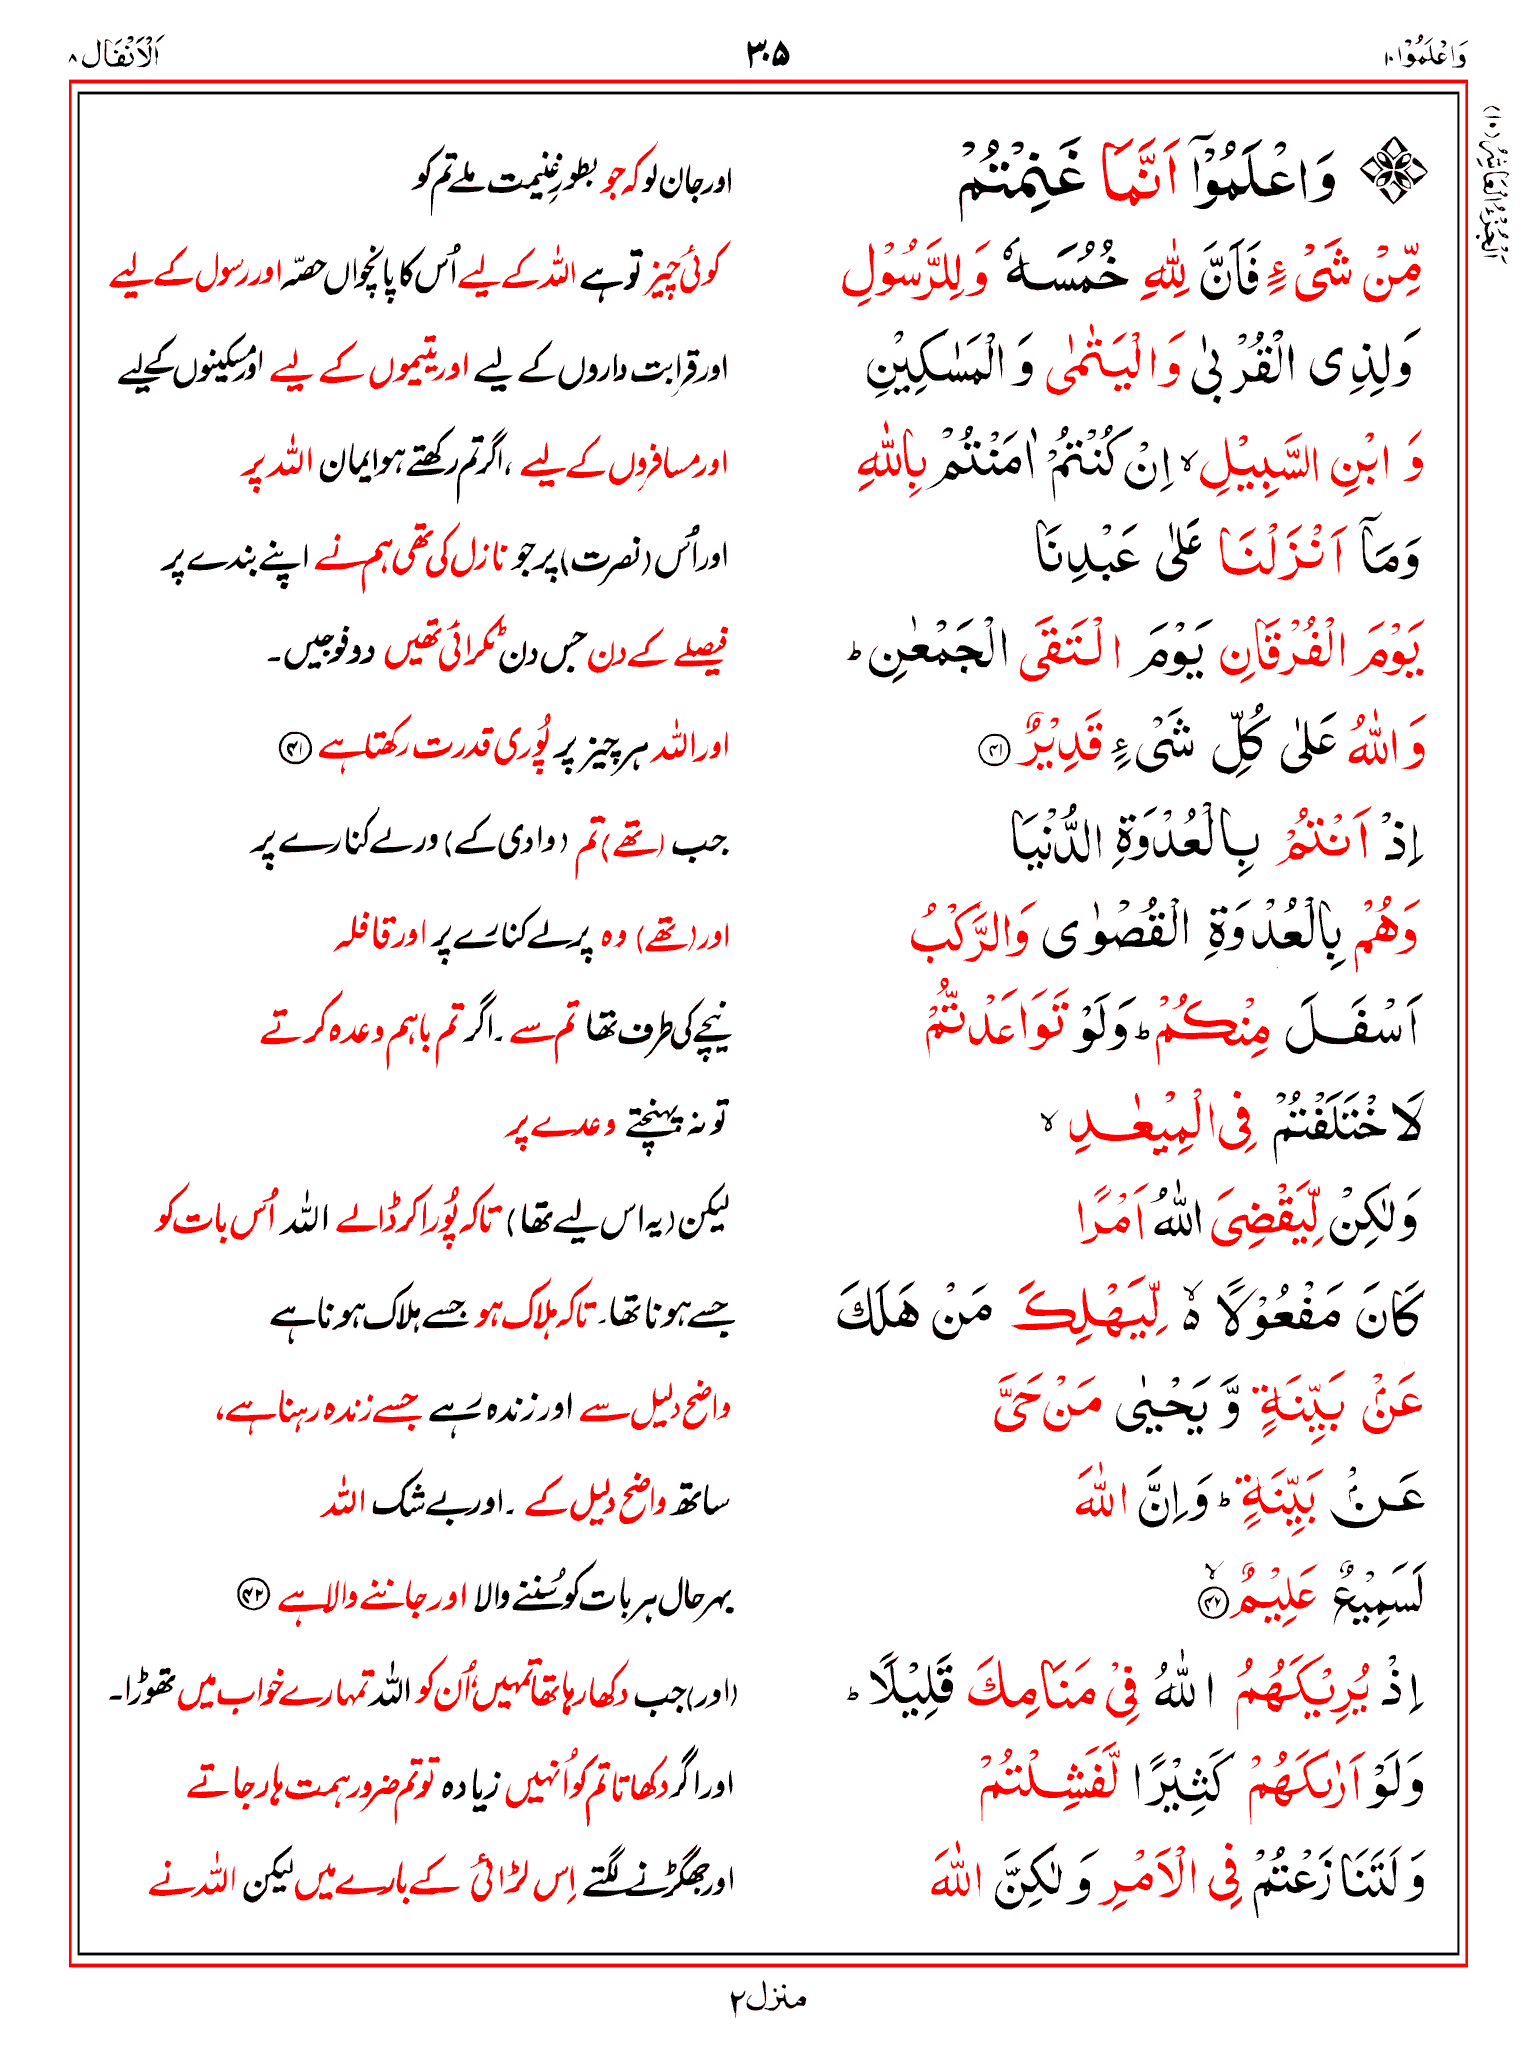 وَاعْلَمُوْا ۱۰ ۳۰۵ اَلْاَنْفَال ۸
اَلْجُزْءُ الْعَاشِرُ (۱۰)
وَاعْلَمُوْۤا اَنَّمَا غَنِمْتُمْ اور جان لو کہ جو بطورِ غنیمت ملے تم کو
مِّنْ شَیْءٍ فَاَنَّ لِلّٰهِ خُمُسَهٗ وَ لِلرَّسُوْلِ کوئی چیز تو ہے اللہ کے لیے اُس کا پانچواں حصّہ اور رسول کے لیے
وَلِذِی الْقُرْبٰی وَالْیَتٰمٰی وَ الْمَسٰکِیْنِ اور قرابت داروں کے لیے اور یتیموں کے لیے اور مسکینوں کے لیے
وَ ابْنِ السَّبِیْلِ ۙ اِنْ کُنْتُمْ اٰمَنْتُمْ بِاللّٰهِ اور مسافروں کے لیے ،اگر تم رکھتے ہو ایمان اللہ پر
وَمَاۤ اَنْزَلْنَا عَلٰی عَبْدِنَا اور اُس (نصرت) پر جو نازل کی تھی ہم نے اپنے بندے پر
یَوْمَ الْفُرْقَانِ یَوْمَ الْتَقَی الْجَمْعٰنِ ؕ فیصلے کے دن جس دن ٹکرائی تھیں دو فوجیں۔
وَ اللّٰهُ عَلٰی کُلِّ شَیْءٍ قَدِیْرٌ ﴿۴۱﴾ اور اللہ ہر چیز پر پُوری قدرت رکھتا ہے ﴿۴۱﴾
اِذْ اَنْتُمْ بِالْعُدْوَةِ الدُّنْیَا جب (تھے) تم (وادی کے) ورلے کنارے پر
وَهُمْ بِالْعُدْوَةِ الْقُصْوٰی وَالرَّکْبُ اور (تھے) وہ پرلے کنارے پر اور قافلہ
اَسْفَلَ مِنْکُمْ ؕ وَلَوْ تَوَاعَدْتُّمْ نیچے کی طرف تھا تم سے ۔اگر تم باہم وعدہ کرتے
لَاخْتَلَفْتُمْ فِی الْمِیْعٰدِ ۙ تو نہ پہنچتے وعدے پر
وَلٰکِنْ لِّیَقْضِیَ اللّٰهُ اَمْرًا لیکن (یہ اس لیے تھا) تاکہ پُورا کر ڈالے اللہ اُس بات کو
کَانَ مَفْعُوْلًا ۙ۬ لِّیَهْلِکَ مَنْ هَلَکَ جسے ہونا تھا۔ تاکہ ہلاک ہو جسے ہلاک ہونا ہے
عَنْۢ بَیِّنَةٍ وَّ یَحْیٰی مَنْ حَیَّ واضح دلیل سے اور زندہ رہے جسے زندہ رہنا ہے،
عَنْۢ بَیِّنَةٍ ؕ وَ اِنَّ اللّٰهَ ساتھ واضح دلیل کے ۔اور بے شک اللہ
لَسَمِیْعٌ عَلِیْمٌ ﴿ۙ۴۲﴾ بہر حال ہر بات کو سُننے والا اور جاننے والا ہے ﴿۴۲﴾
اِذْ یُرِیْکَهُمُ اللّٰهُ فِیْ مَنَامِكَ قَلِیْلًا ؕ (اور) جب دکھا رہا تھا تمہیں اُن کو اللہ تمہارے خواب میں تھوڑا۔
وَلَوْ اَرٰىکَهُمْ کَثِیْرًا لَّفَشِلْتُمْ اور اگر دکھاتا تم کو اُنہیں زیادہ تو تم ضرور ہمت ہار جاتے
وَ لَتَنَازَعْتُمْ فِی الْاَمْرِ وَ لٰکِنَّ اللّٰهَ اور جھگڑنے لگتے اِس لڑائی کے بارے میں لیکن اللہ نے
منزل ۲